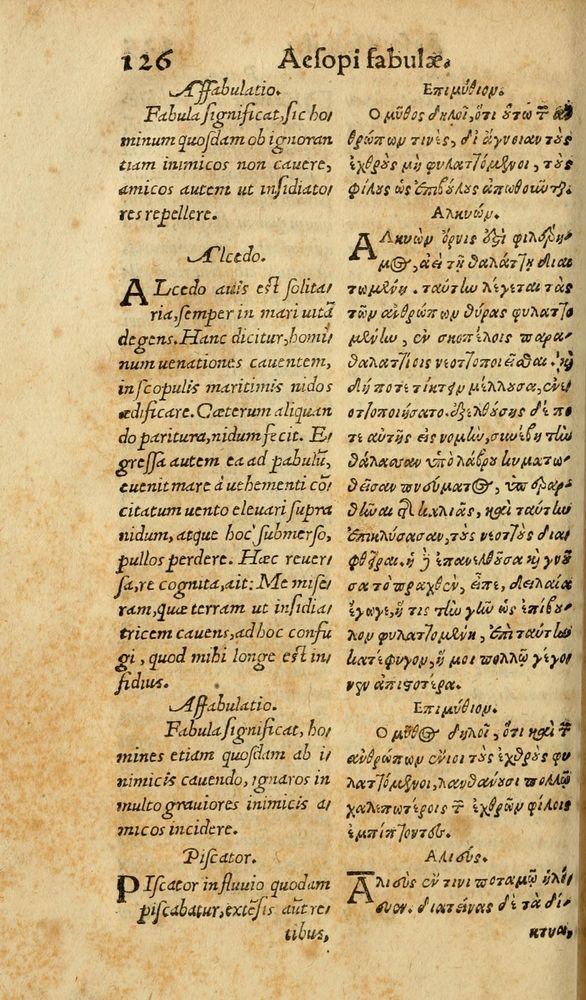 126
Aesopi fabulæ.
Affabulatio.
Fabula significat, sic ho/
minum quosdam ob ignoran
tiam inimicos non cauere,
amicos autem ut insidiato/
res repellere.
Alcedo.
ALcedo auis est solita/
ria, semper in mari uitã
degens. Hanc dicitur, homi/
num uenationes cauentem,
in scopulis maritimis nidos
ædificare. Cæterum aliquan
do paritura, nidum fecit. E/
gressa autem ea ad pabulũ,
euenit mare à uehementi cõ/
citatum uento eleuari supra
nidum, atque hoc submerso,
pullos perdere. Hæc reuer/
sa, re cognita, ait: Me mise/
ram, quæ terram ut insidia/
tricem cauens, ad hoc confu/
gi, quod mihi longe est in/
fidius.
Affabulatio.
Fabula significat, ho/
mines etiam quosdam ab i/
nimicis cauendo, ignaros in
multo grauiores inimicis a/
micos incidere.
Piscator.
PIscator in fluuio quodam
piscabatur, extẽsis aũt re/
tibus,
Επιμύθιον.
Ο μῦθος δηλοῖ, ὅτι οὕτω τῶν ἀν
θρώπων τινὲς, δι᾽ ἄγνοιαν τοὺς
ἐχθροὺς μὴ φυλαττόμενοι, τοὺς
φίλους ὡς ἐπιβούλους ἀπωθοῦνται.
Αλκυών.
ΑΛκυὼν ὄρνις ὀξὶ φιλέρη/
μος, ἀεὶ τῇ θαλάττῃ διαι
τωμένη. ταύτην λέγεται τὰς
τῶν ἀνθρώπων θύρας φυλαττο
μένην, ἐν σκοπέλοις παρα/
θαλαττίοις νεοττοποιεῖσθαι. καὶ
δή ποτε τίκτειν μέλλουσα, ἐνε
οττοποιήσατο. ἐξελθούσης δέ πο
τε αὐτῆς εἰς νομὴν, συνέβη τὴν
θάλασσαν ὑπὸ λάβρου κυματω/
θεῖσαν πνεύματος, ὑπεραρ/
θῆναι τῆς καλιᾶς, καὶ ταύτην
ἐπικλύσασαν, τοὺς νεοττοὺς δια
φθεῖραι. ἡ δὲ ἐπανελθοῦσα καὶ γνοῦ
σα τὸ πραχθὲν, εἶπε, δειλαία
ἔγωγε, ἥ τις τὴν γῆν ὡς ἐπίβου/
λον φυλαττομένη, ἐπὶ ταύτην
κατέφυγον, ἥ μοι πολλῷ γέγο/
νεν ἀπιστοτέρα.
Επιμύθιον.
Ο μῦθος δηλοῖ, ὅτι καὶ τῶν
ἀνθρώπων ἔνιοι τοὺς ἐχθροὺς φυ
λαττόμενοι, λανθάνουσι πολλῷ
χαλεπωτέροις τῶν ἐχθρῶν φίλοις
ἐμπίπτοντες.
Αλιεύς.
ΑΛιεὺς ἔν τινι ποταμῷ ἡλίευ
ευεν. διατείνας δὲ τὰ δί/
κτυα,